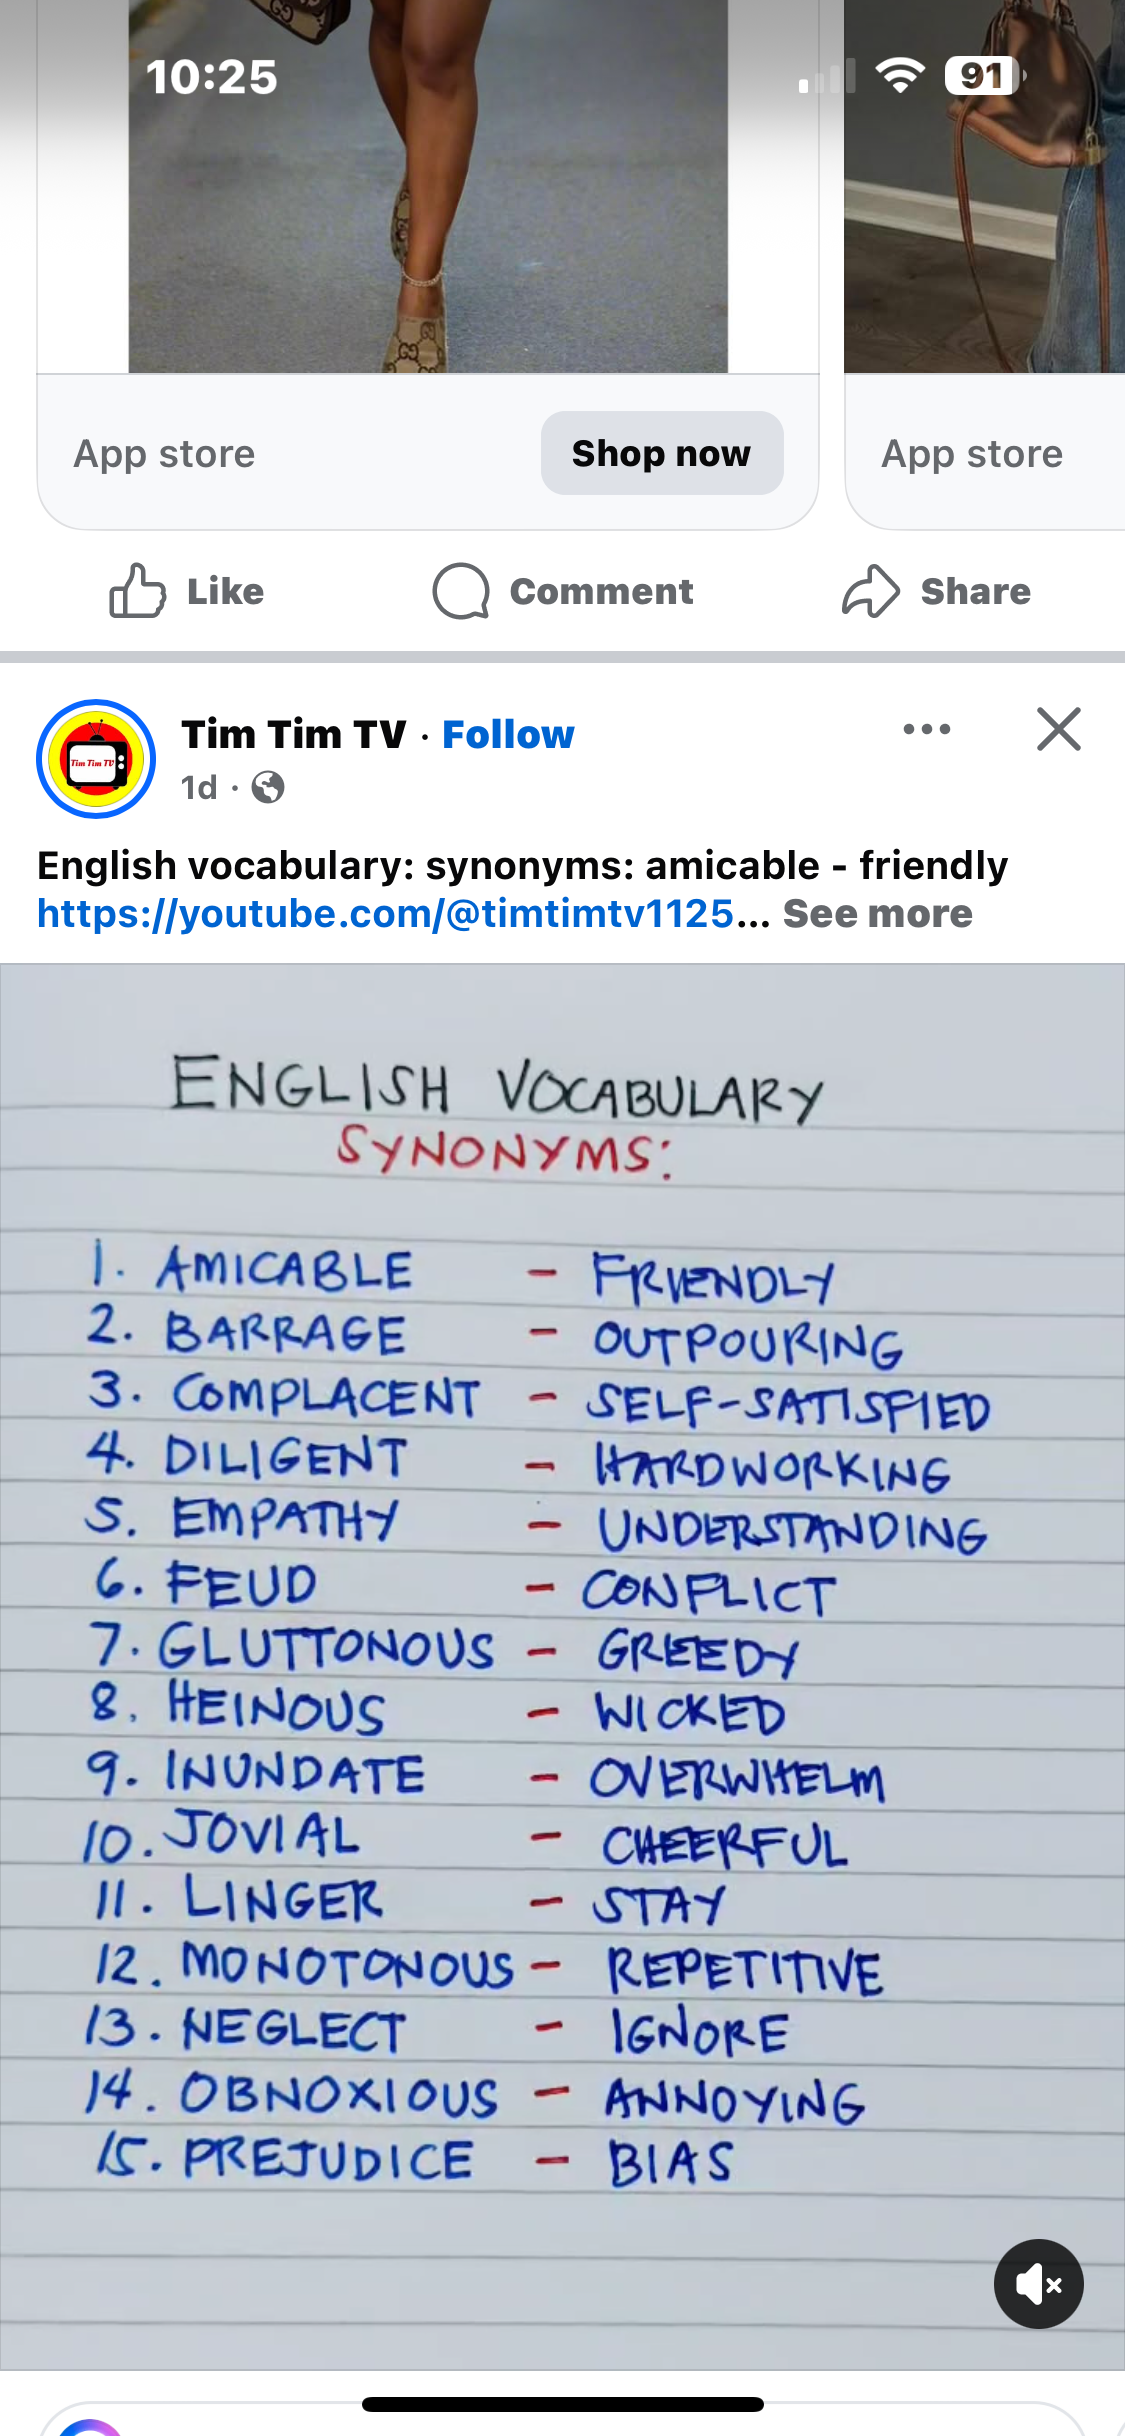 10:25
91
App store
Shop now
App store
Like
Comment
Share
Tim Tim TV
Tim Tim TV · Follow
1d ·
English vocabulary: synonyms: amicable - friendly
https://youtube.com/@timtimtv1125... See more
ENGLISH VOCABULARY
SYNONYMS:
1. AMICABLE - FRIENDLY
2. BARRAGE - OUTPOURING
3. COMPLACENT - SELF-SATISFIED
4. DILIGENT - HARDWORKING
5. EMPATHY - UNDERSTANDING
6. FEUD - CONFLICT
7. GLUTTONOUS - GREEDY
8. HEINOUS - WICKED
9. INUNDATE - OVERWHELM
10. JOVIAL - CHEERFUL
11. LINGER - STAY
12. MONOTONOUS - REPETITIVE
13. NEGLECT - IGNORE
14. OBNOXIOUS - ANNOYING
15. PREJUDICE - BIAS